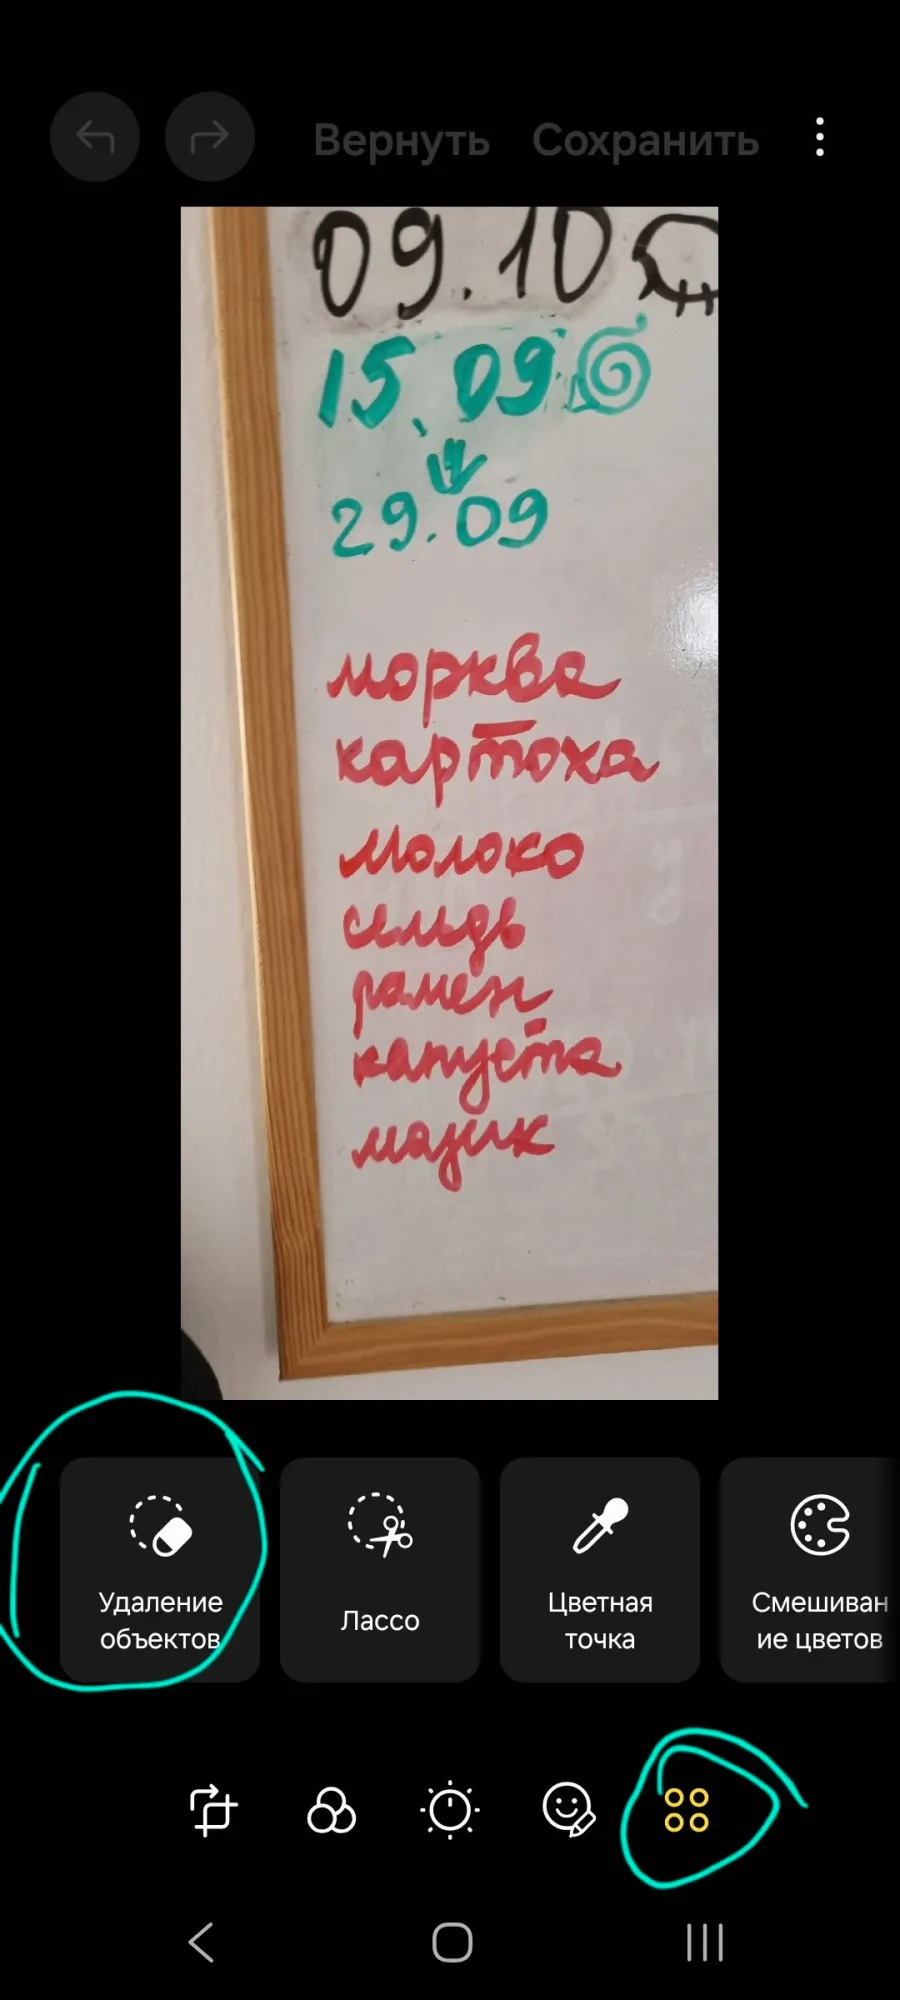 Вернуть Сохранить
09.10
15.09
29.09
морква
картоха
молоко
сельдь
рамен
капуста
мазик
Удаление объектов
Лассо
Цветная точка
Смешивание цветов